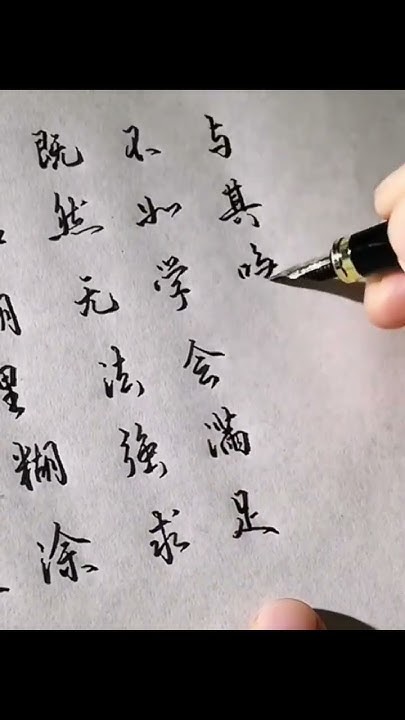 与其唉
不如学会满足
既然无法强求
里糊涂